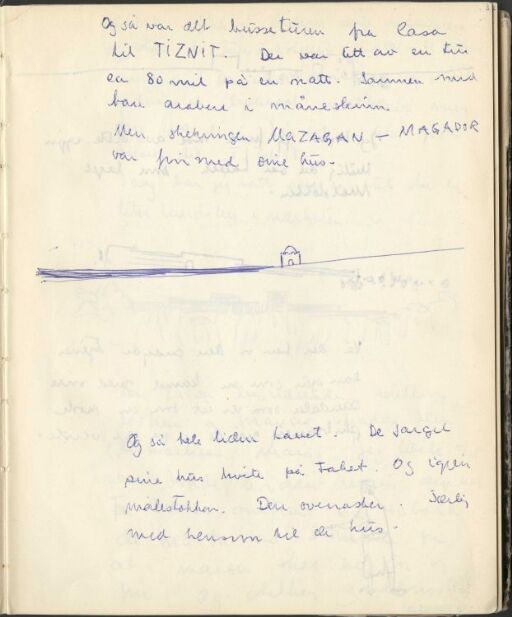 Og så var det bussturen fra Casa
til TIZNIT. Det var litt av en tur
ca 80 mil på en natt. Sammen med
bare arabere i måneskinn.
Men strekningen MAZAGAN – MAGADOR
var fin med sine hus.
Og så hele tiden havet. De
sine hus hvite på taket. Og igjen
målestokken. Den overrasker. Særlig
med hensyn til de hus.